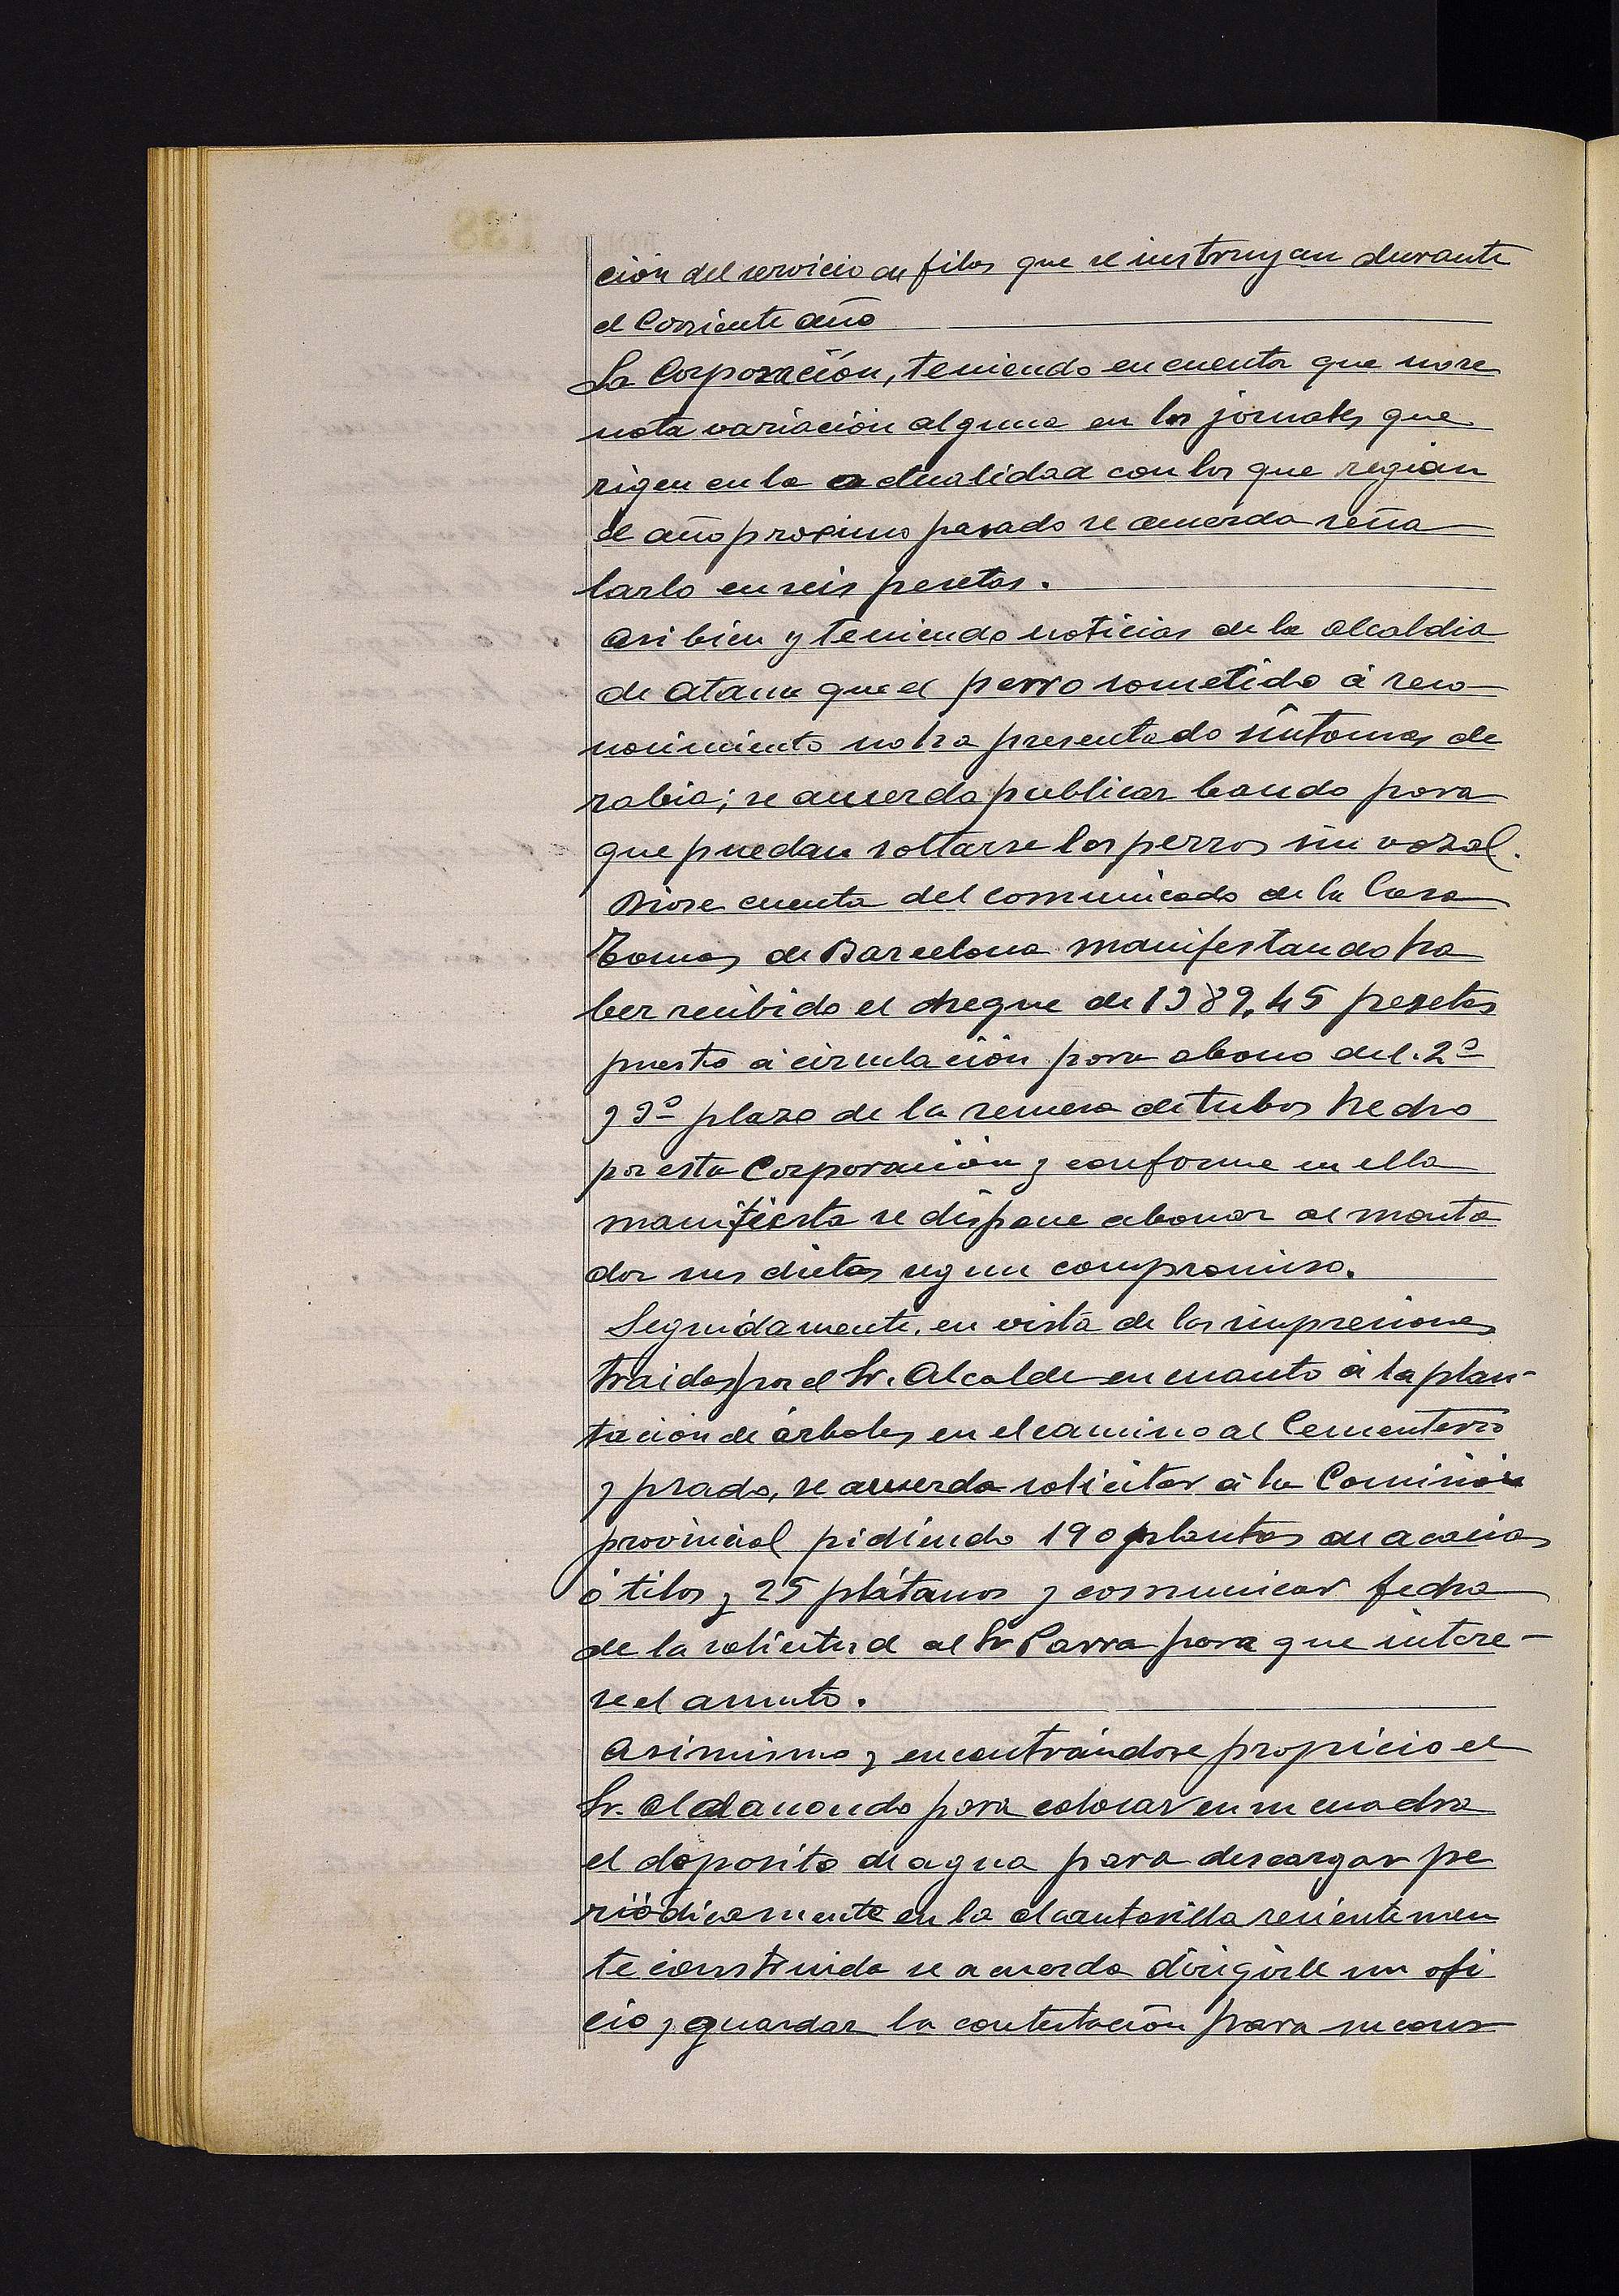 ción del servicio de filas que se instruyan durante
el Corriente año
La Corporación, teniendo en cuenta que no se
nota variación alguna en los jornales que
rigen en la actualidad con los que regian
el año proximo pasado se acuerda seña
larlo en seis pesetas.
Asi bien y teniendo noticias de la alcaldia
de Ataun que el perro sometido á reco
nocimiento no ha presentado síntomas de
rabia; se acuerda publicar bando para
que puedan soltarse los perros sin vozal.
Diose cuenta del comunicado de la Casa
Tomas de Barcelona manifestando ha
ber recibido el cheque de 1389,45 pesetas
puesto á circulación para abono del 2º
y 3º plazo de la remesa de tubos hecho
por esta Corporación y conforme en ella
manifiesta se dispone abonar al monta
dor sus dietas segun compromiso.
Seguidamente, en vista de las impresiones
traidas por el Sr. Alcalde en cuanto á la plan-
tación de árboles en el camino al Cementerio
y prado, se acuerda solicitar á la Comisión
provincial pidiendo 190 plantas de acacias
ó tilos y 25 plátanos y comunicar fecha
de la solicitud al Sr Parra para que intere-
se el asunto.
Asimismo y encontrándose propicio el
Sr. Aldanondo para colocar en su cuadra
el deposito de agua para descargar pe
riódicamente en la alcantarilla recientemen
te construida se acuerda dirigirle un ofi
cio y guardar la contestación para su cons